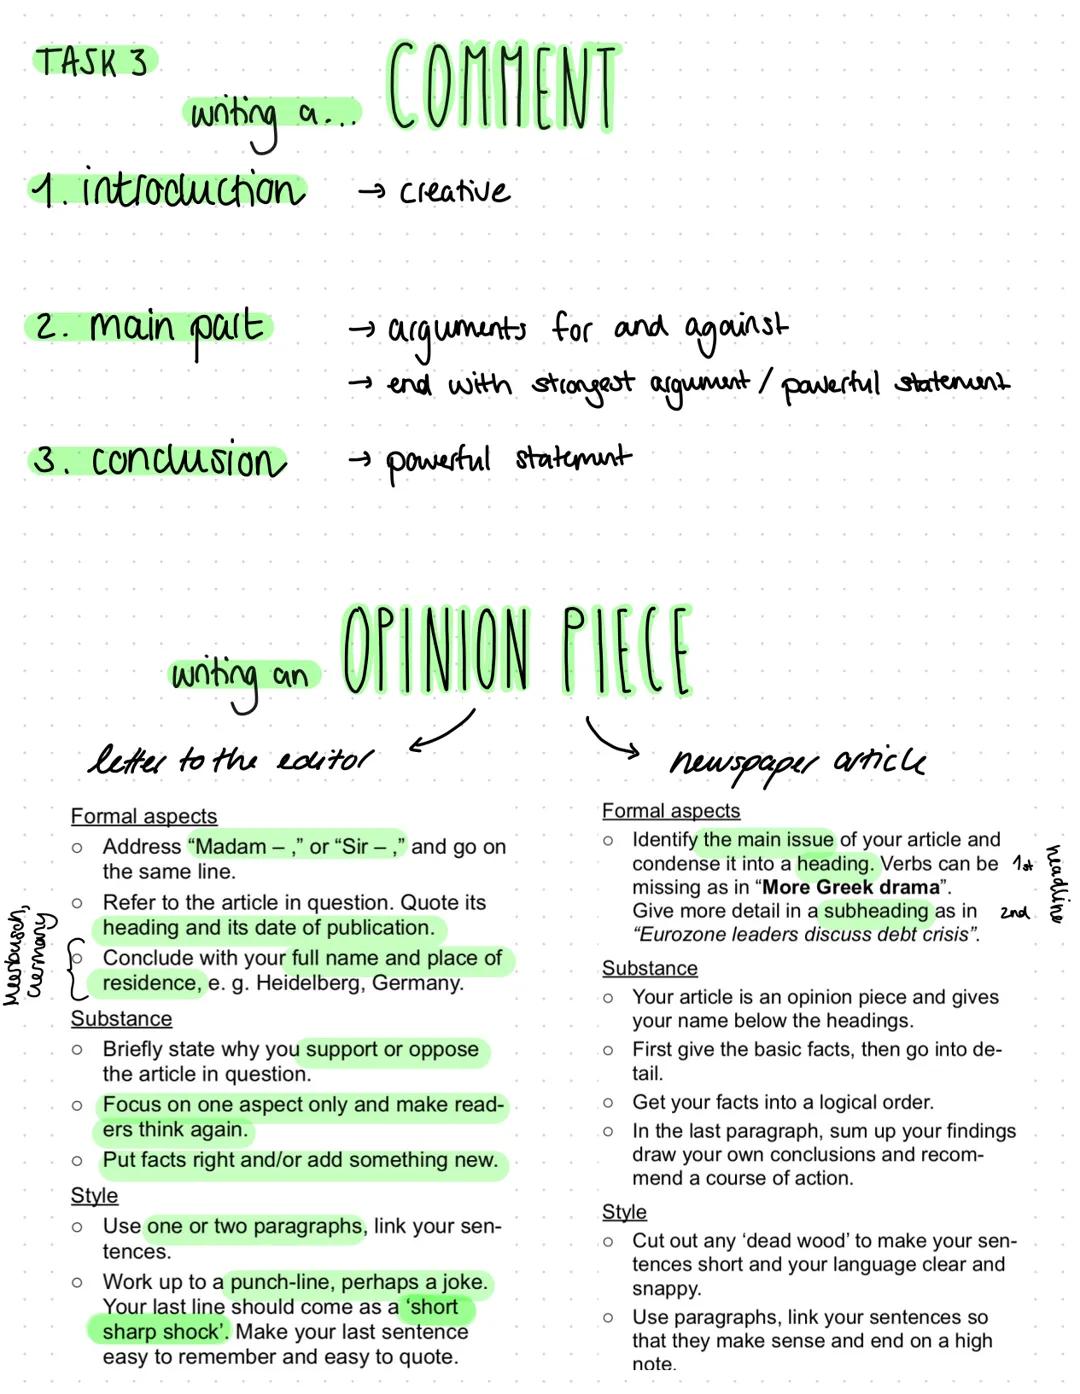 TASK 3
writing a... COMMENT
1. introduction → creative
2. main part → arguments for and against
→ end with strongest argument / powerful statement
3. conclusion → powerful statement
writing an OPINION PIECE
letter to the editor
Formal aspects
○ Address “Madam – ,” or “Sir – ,” and go on
the same line.
○ Refer to the article in question. Quote its
heading and its date of publication.
○ Conclude with your full name and place of
residence, e. g. Heidelberg, Germany.
Meerbusch,
Germany
Substance
○ Briefly state why you support or oppose
the article in question.
○ Focus on one aspect only and make read-
ers think again.
○ Put facts right and/or add something new.
Style
○ Use one or two paragraphs, link your sen-
tences.
○ Work up to a punch-line, perhaps a joke.
Your last line should come as a ‘short
sharp shock’. Make your last sentence
easy to remember and easy to quote.
newspaper article
Formal aspects
○ Identify the main issue of your article and
condense it into a heading. Verbs can be 1st
missing as in “More Greek drama”.
Give more detail in a subheading as in 2nd
“Eurozone leaders discuss debt crisis”.
headline
Substance
○ Your article is an opinion piece and gives
your name below the headings.
○ First give the basic facts, then go into de-
tail.
○ Get your facts into a logical order.
○ In the last paragraph, sum up your findings
draw your own conclusions and recom-
mend a course of action.
Style
○ Cut out any ‘dead wood’ to make your sen-
tences short and your language clear and
snappy.
○ Use paragraphs, link your sentences so
that they make sense and end on a high
note.